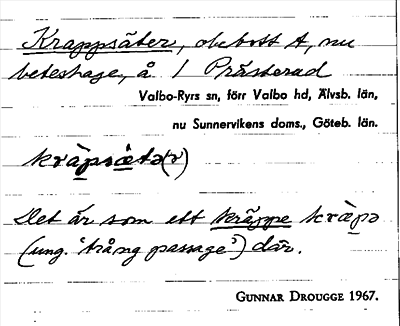 Krappsäter, obebott t, nu
beteshage, å 1 Prästerud
Valbo-Ryrs sn, förr Valbo hd, Älvsb. län,
nu Sunnervikens doms., Göteb. län.
kràpsætə(r)
Det är som ett kräppe kràpə
(ung. 'trång passage') där.
Gunnar Drougge 1967.